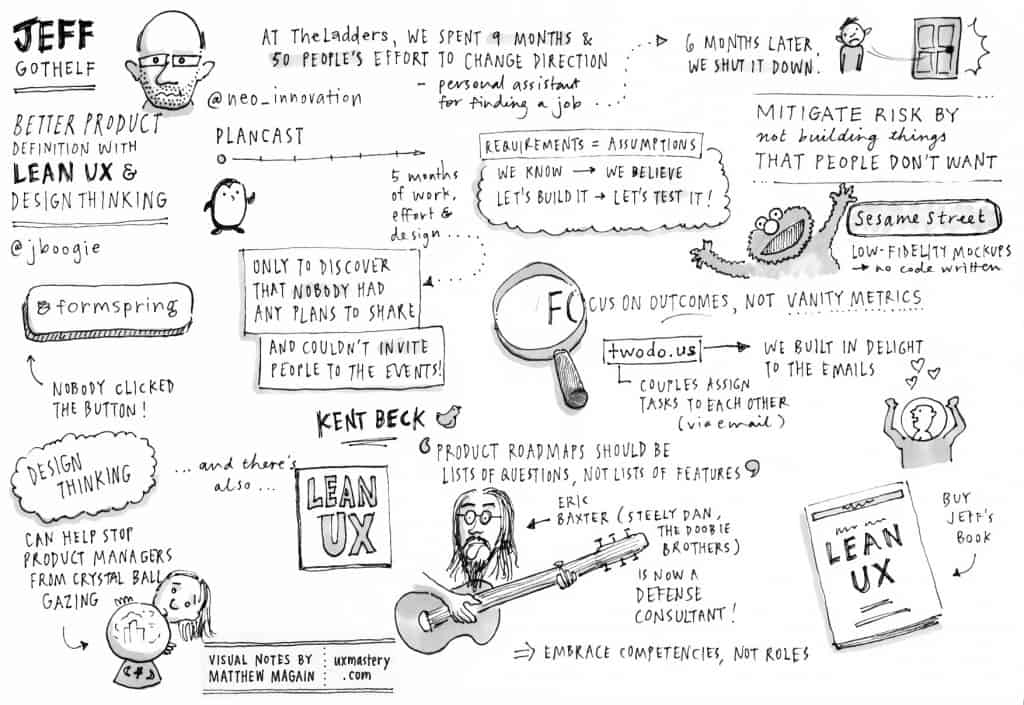 JEFF
GOTHELF
BETTER PRODUCT
DEFINITION WITH
LEAN UX &
DESIGN THINKING
@jboogie
@neo_innovation
AT TheLadders, WE SPENT 9 MONTHS &
50 PEOPLE'S EFFORT TO CHANGE DIRECTION
- personal assistant
for finding a job ...
6 MONTHS LATER
WE SHUT IT DOWN!
PLANCAST
5 months
of work,
effort &
design ....
ONLY TO DISCOVER
THAT NOBODY HAD
ANY PLANS TO SHARE
AND COULDN'T INVITE
PEOPLE TO THE EVENTS!
REQUIREMENTS = ASSUMPTIONS
WE KNOW → WE BELIEVE
LET'S BUILD IT → LET'S TEST IT!
MITIGATE RISK BY
not building things
THAT PEOPLE DON'T WANT
Sesame Street
LOW-FIDELITY MOCKUPS
→ no code written
formspring
NOBODY CLICKED
THE BUTTON!
FOCUS ON OUTCOMES, NOT VANITY METRICS
twodo.us → WE BUILT IN DELIGHT
TO THE EMAILS
COUPLES ASSIGN
TASKS TO EACH OTHER
(via email)
KENT BECK
"PRODUCT ROADMAPS SHOULD BE
LISTS OF QUESTIONS, NOT LISTS OF FEATURES"
DESIGN
THINKING
CAN HELP STOP
PRODUCT MANAGERS
FROM CRYSTAL BALL
GAZING
... and there's
also ...
LEAN
UX
ERIC
BAXTER (STEELY DAN,
THE DOOBIE
BROTHERS)
IS NOW A
DEFENSE
CONSULTANT!
⇒ EMBRACE COMPETENCIES, NOT ROLES
LEAN
UX
BUY
JEFF'S
BOOK
VISUAL NOTES BY
MATTHEW MAGAIN
uxmastery
.com